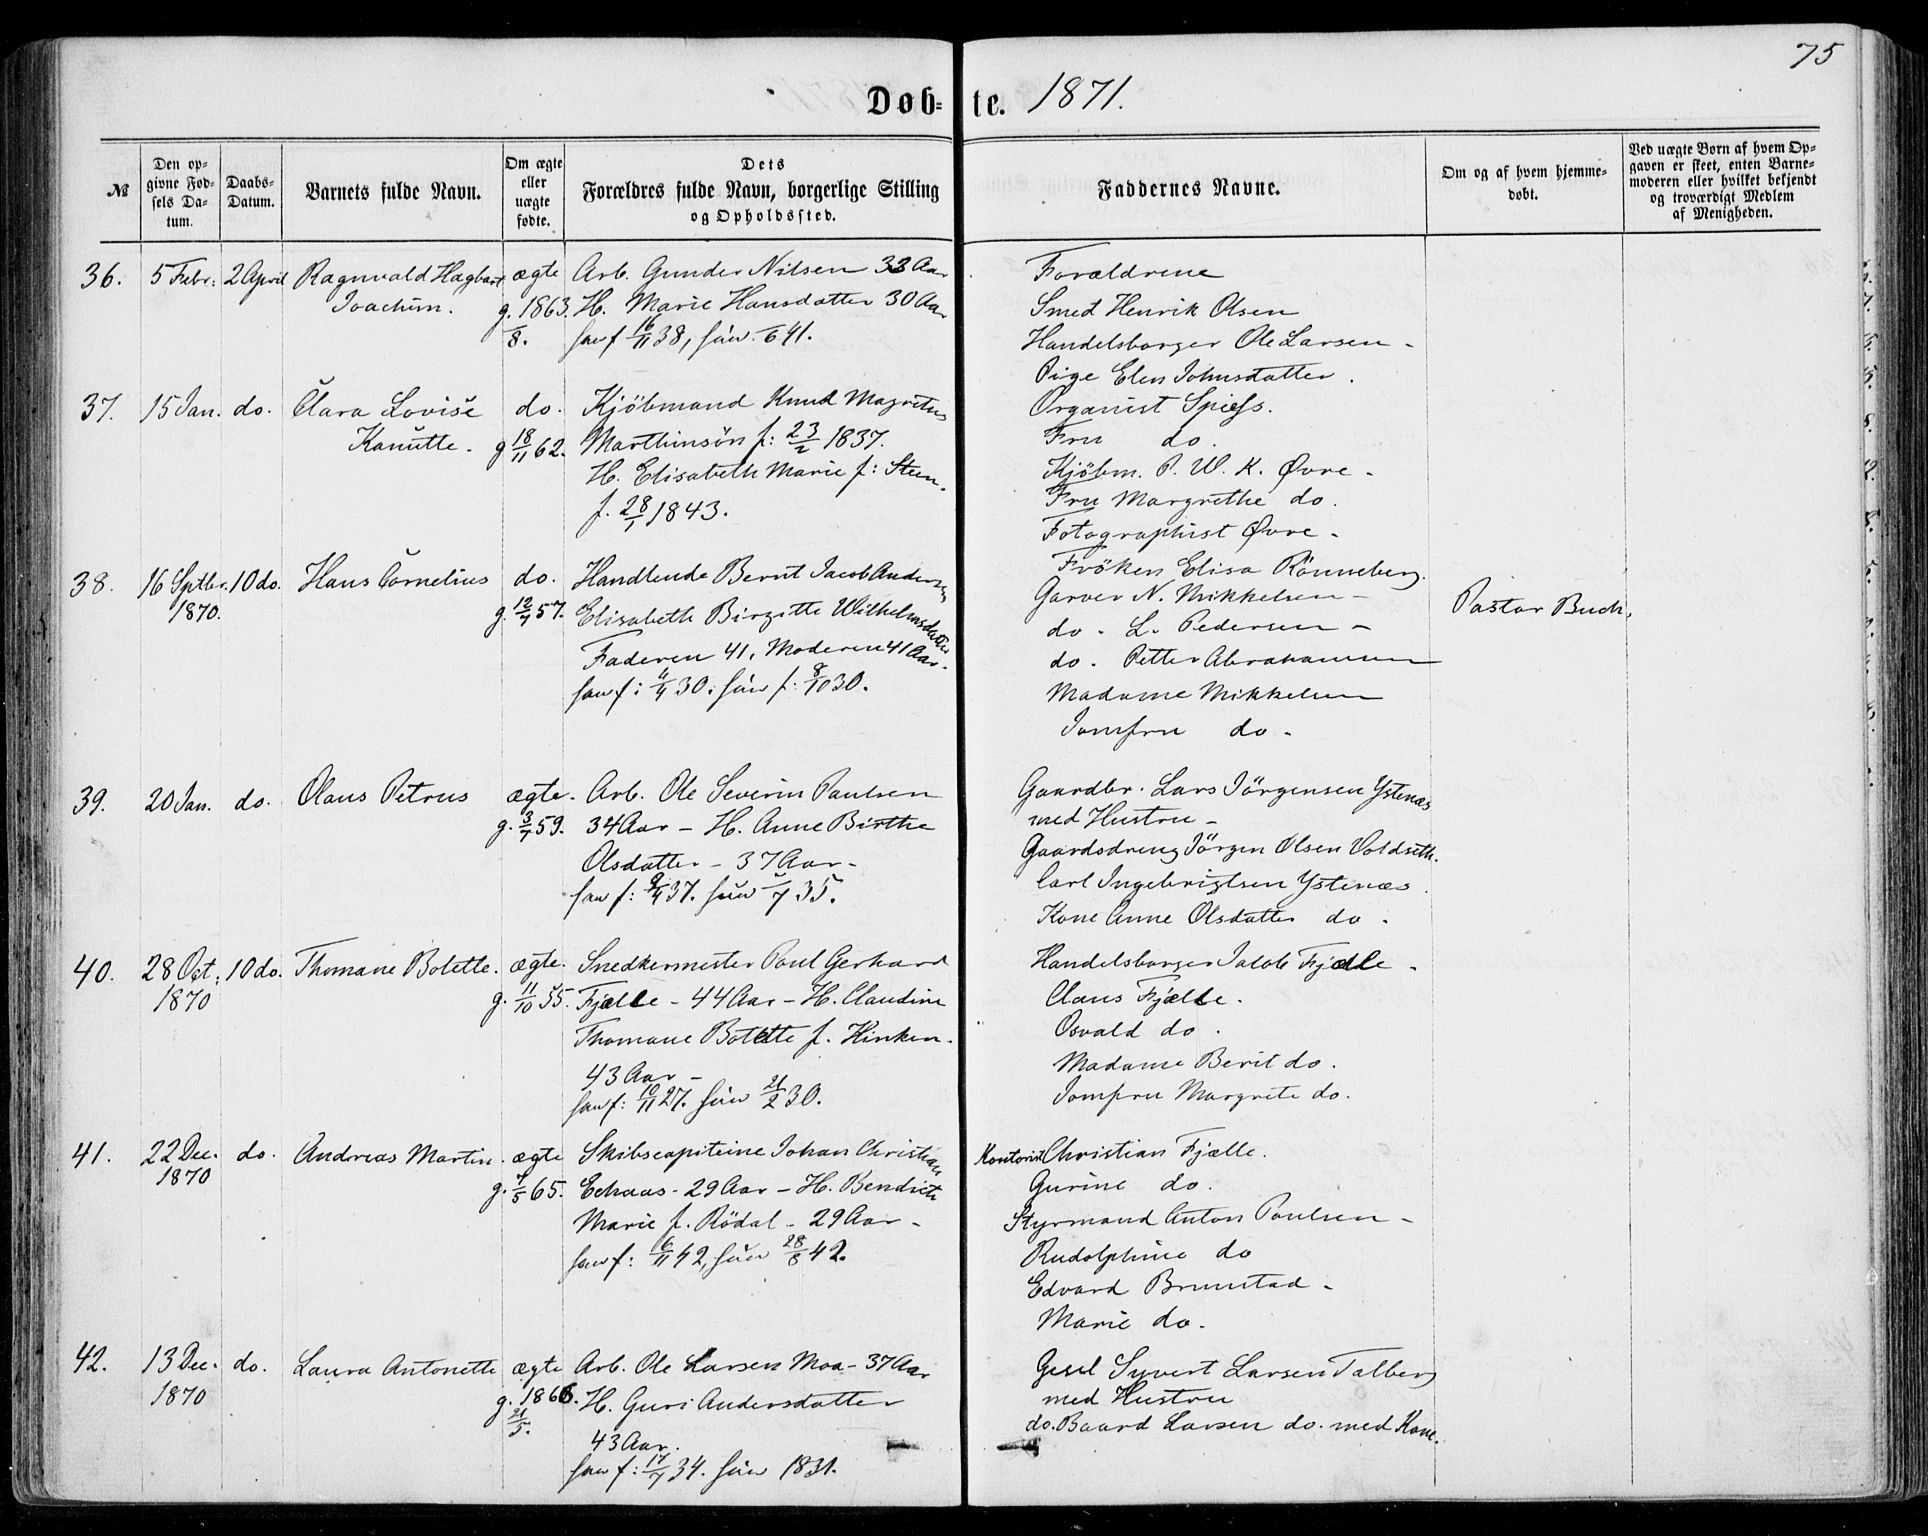 75
Døb- te. 1871.
№
Den opgivne Fødsels Datum.
Daabs-Datum.
Barnets fulde Navn.
Om ægte eller uægte fødte.
Dets Forældres fulde Navn, borgerlige Stilling og Opholdssted.
Faddernes Navne.
Om og af hvem hjemmedøbt.
Ved uægte Børn af hvem Opgaven er skeet, enten Barnemoderen eller hvilket bekjendt og troværdigt Medlem af Menigheden.
36. 5 Febr: 2 April Ragnvald Hagbart ægte Arb. Gunder Nilsen 33 Aar
Joachim. g. 1863. H. Marie Hansdatter 30 Aar
8. han f 16/11 38, hun 41.
Forældrene
Smed Henrik Olsen
Handelsborger Ole Larsen -
Pige Elen Johnsdatter.
37. 15 Jan. do. Clara Lovise do. Kjöbmand Knud Magretus
Kanutte. g 18/11 62. Marthinsön f: 23/2 1837.
H. Elisabeth Marie f: Steen.
f. 28/1 1843.
Organist Spiess.
Fru do.
Kjöbm. P. W. K. Øvre -
Fru Margrethe do.
Fotographist Øvre -
Fröken Elisa Rönneberg.
38. 16 Sptbr. 10 do. Hans Cornelius do. Handlende Bernt Jacob Andersen
1870. g. 12/7 57. Elisabeth Birgitte Wilhelmsdatter
Faderen 41, Moderen 41 Aar.
han f: 4/4 30. hun f: 8/10 30.
Garver N. Mikkelsen -
do. L. Pedersen -
do. Petter Abrahamsen
Madame Mikkelsen
Jomfru do -
Pastor Buch.
39. 20 Jan. do. Olaus Petrus ægte. Arb. Ole Severin Paulsen
g. 3/7 59. 34 Aar - H. Anne Birthe
Olsdatter - 37 Aar -
han f: 9/4 37. hun 7 35.
Gaardbr. Lars Jörgensen Ystenæs
med Hustru -
Gaardsdreng Jörgen Olsen Voldseth.
Carl Ingebrigtsen Ystenæs.
Kone Anne Olsdatter do -
40. 28 Oct: 10 do. Thomane Botette. ægte. Snedkermester Poul Gerhard
1870 g. 11/10 55. Fjælle - 44 Aar - H. Claudine
Thomane Botette f. Hinken.
43 Aar -
han f: 10/11 27. hun 21/2 30.
Handelsborger Jacob Fjælle -
Claus Fjælle.
Osvald do.
Madame Berit do.
Jomfru Margrete do.
41. 22 Dec. do. Andreas Martin. ægte Skibscapiteine Johan Christian
1870 g. 7/5 65. Echaas - 29 Aar - H. Bendicte
Marie f. Rödal - 29 Aar -
han f: 6/11 42, hun 28/8 42.
Kontorist Christian Fjælle.
Gurine do.
Styrmand Anton Poulsen -
Rudolphine do
Edvard Brunstad -
Marie do.
42. 13 Dec. do. Laura Antonette ægte Arb. Ole Larsen Moa - 37 Aar
1870 g. 1866. H. Guri Andersdatter
21/5. 43 Aar.
han f: 17/7 34. hun 1831.
Gesel Syvert Larsen Talberg
med Hustru
do. Baard Larsen do. med Kone.